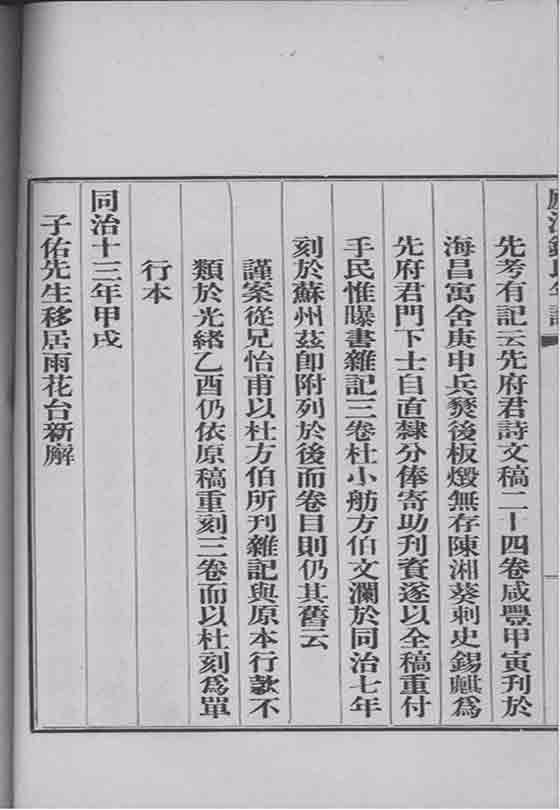 先考有記云先府君詩文稿二十四卷咸豐甲寅刊於
海昌寓舍庚申兵燹後板燬無存陳湘葵刺史錫麒爲
先府君門下士自直隸分俸寄助刊資遂以全稿重付
手民惟曝書雜記三卷杜小舫方伯文瀾於同治七年
刻於蘇州茲卽附列於後而卷目則仍其舊云
謹案從兄怡甫以杜方伯所刊雜記與原本行款不
類於光緖乙酉仍依原稿重刻三卷而以杜刻爲單
行本
同治十三年甲戌
子佑先生移居雨花台新廨